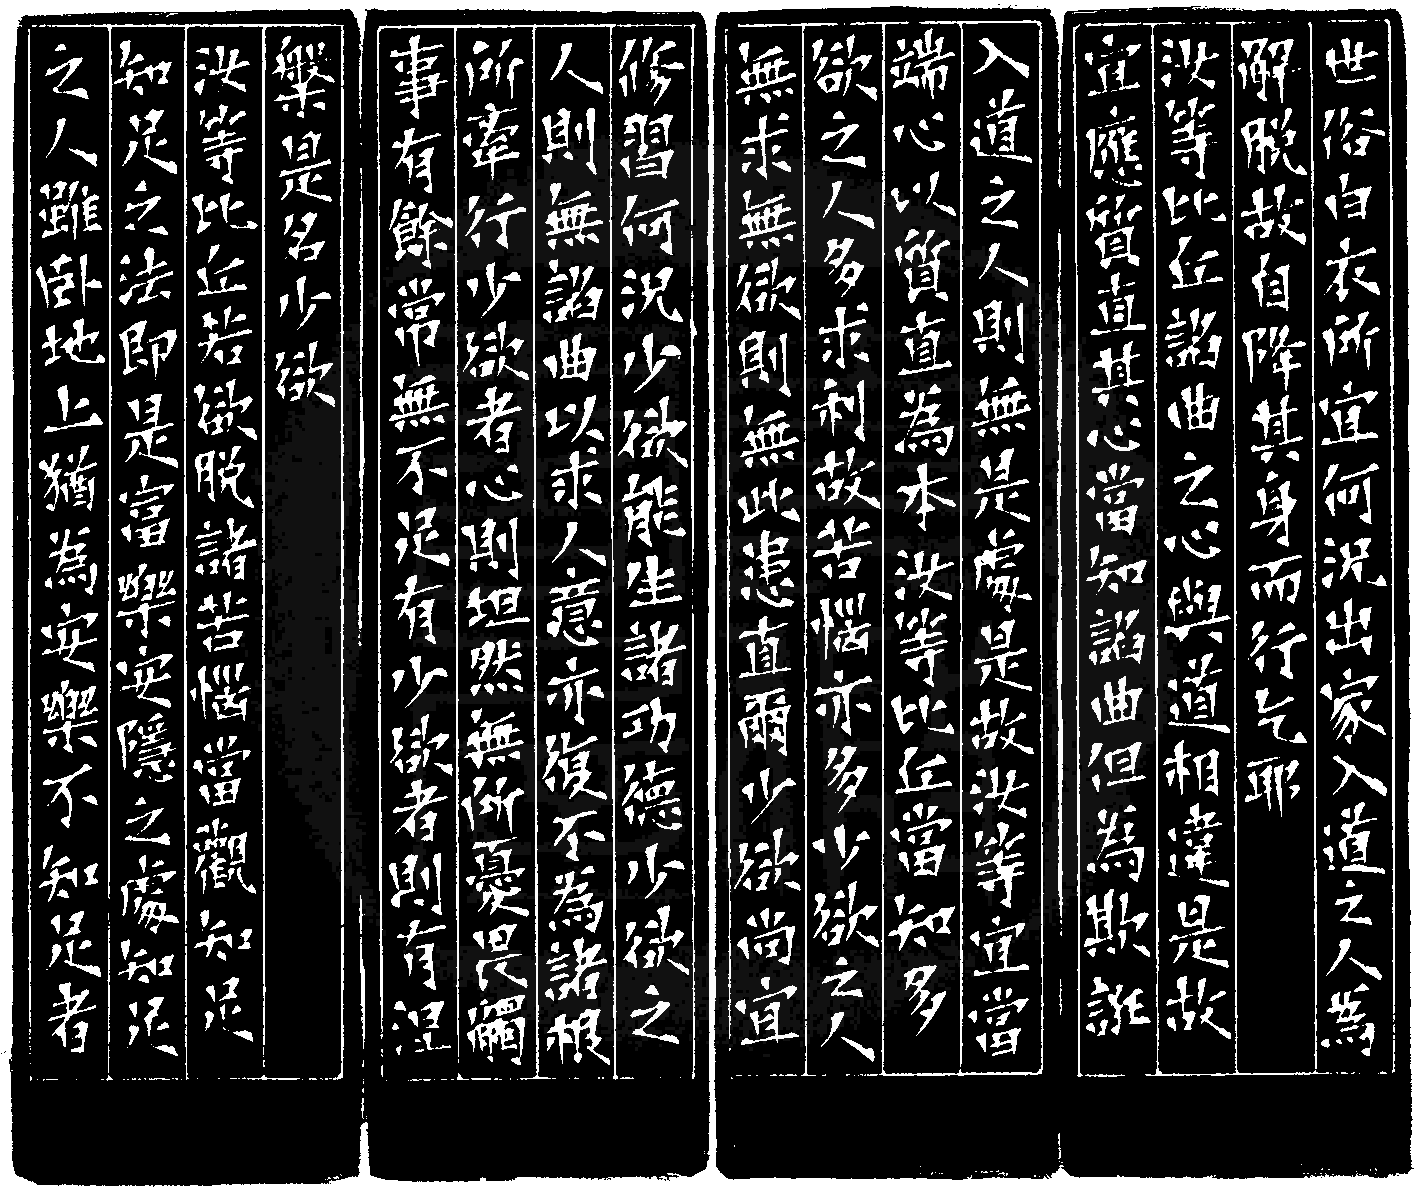 世俗白衣所宜何況出家入道之人為
解脫故自降其身而行乞耶
汝等比丘諂曲之心與道相違是故
宜應質直其心當知諂曲但為欺誑
入道之人則無是處是故汝等宜當
端心以質直為本汝等比丘當知多
欲之人多求利故苦惱亦多少欲之人
無求無欲則無此患直爾少欲尚宜
修習何況少欲能生諸功德少欲之
人則無諂曲以求人意亦復不為諸根
所牽行少欲者心則坦然無所憂畏觸
事有餘常無不足有少欲者則有涅
槃是名少欲
汝等比丘若欲脫諸苦惱當觀知足
知足之法即是富樂安隱之處知足
之人雖臥地上猶為安樂不知足者